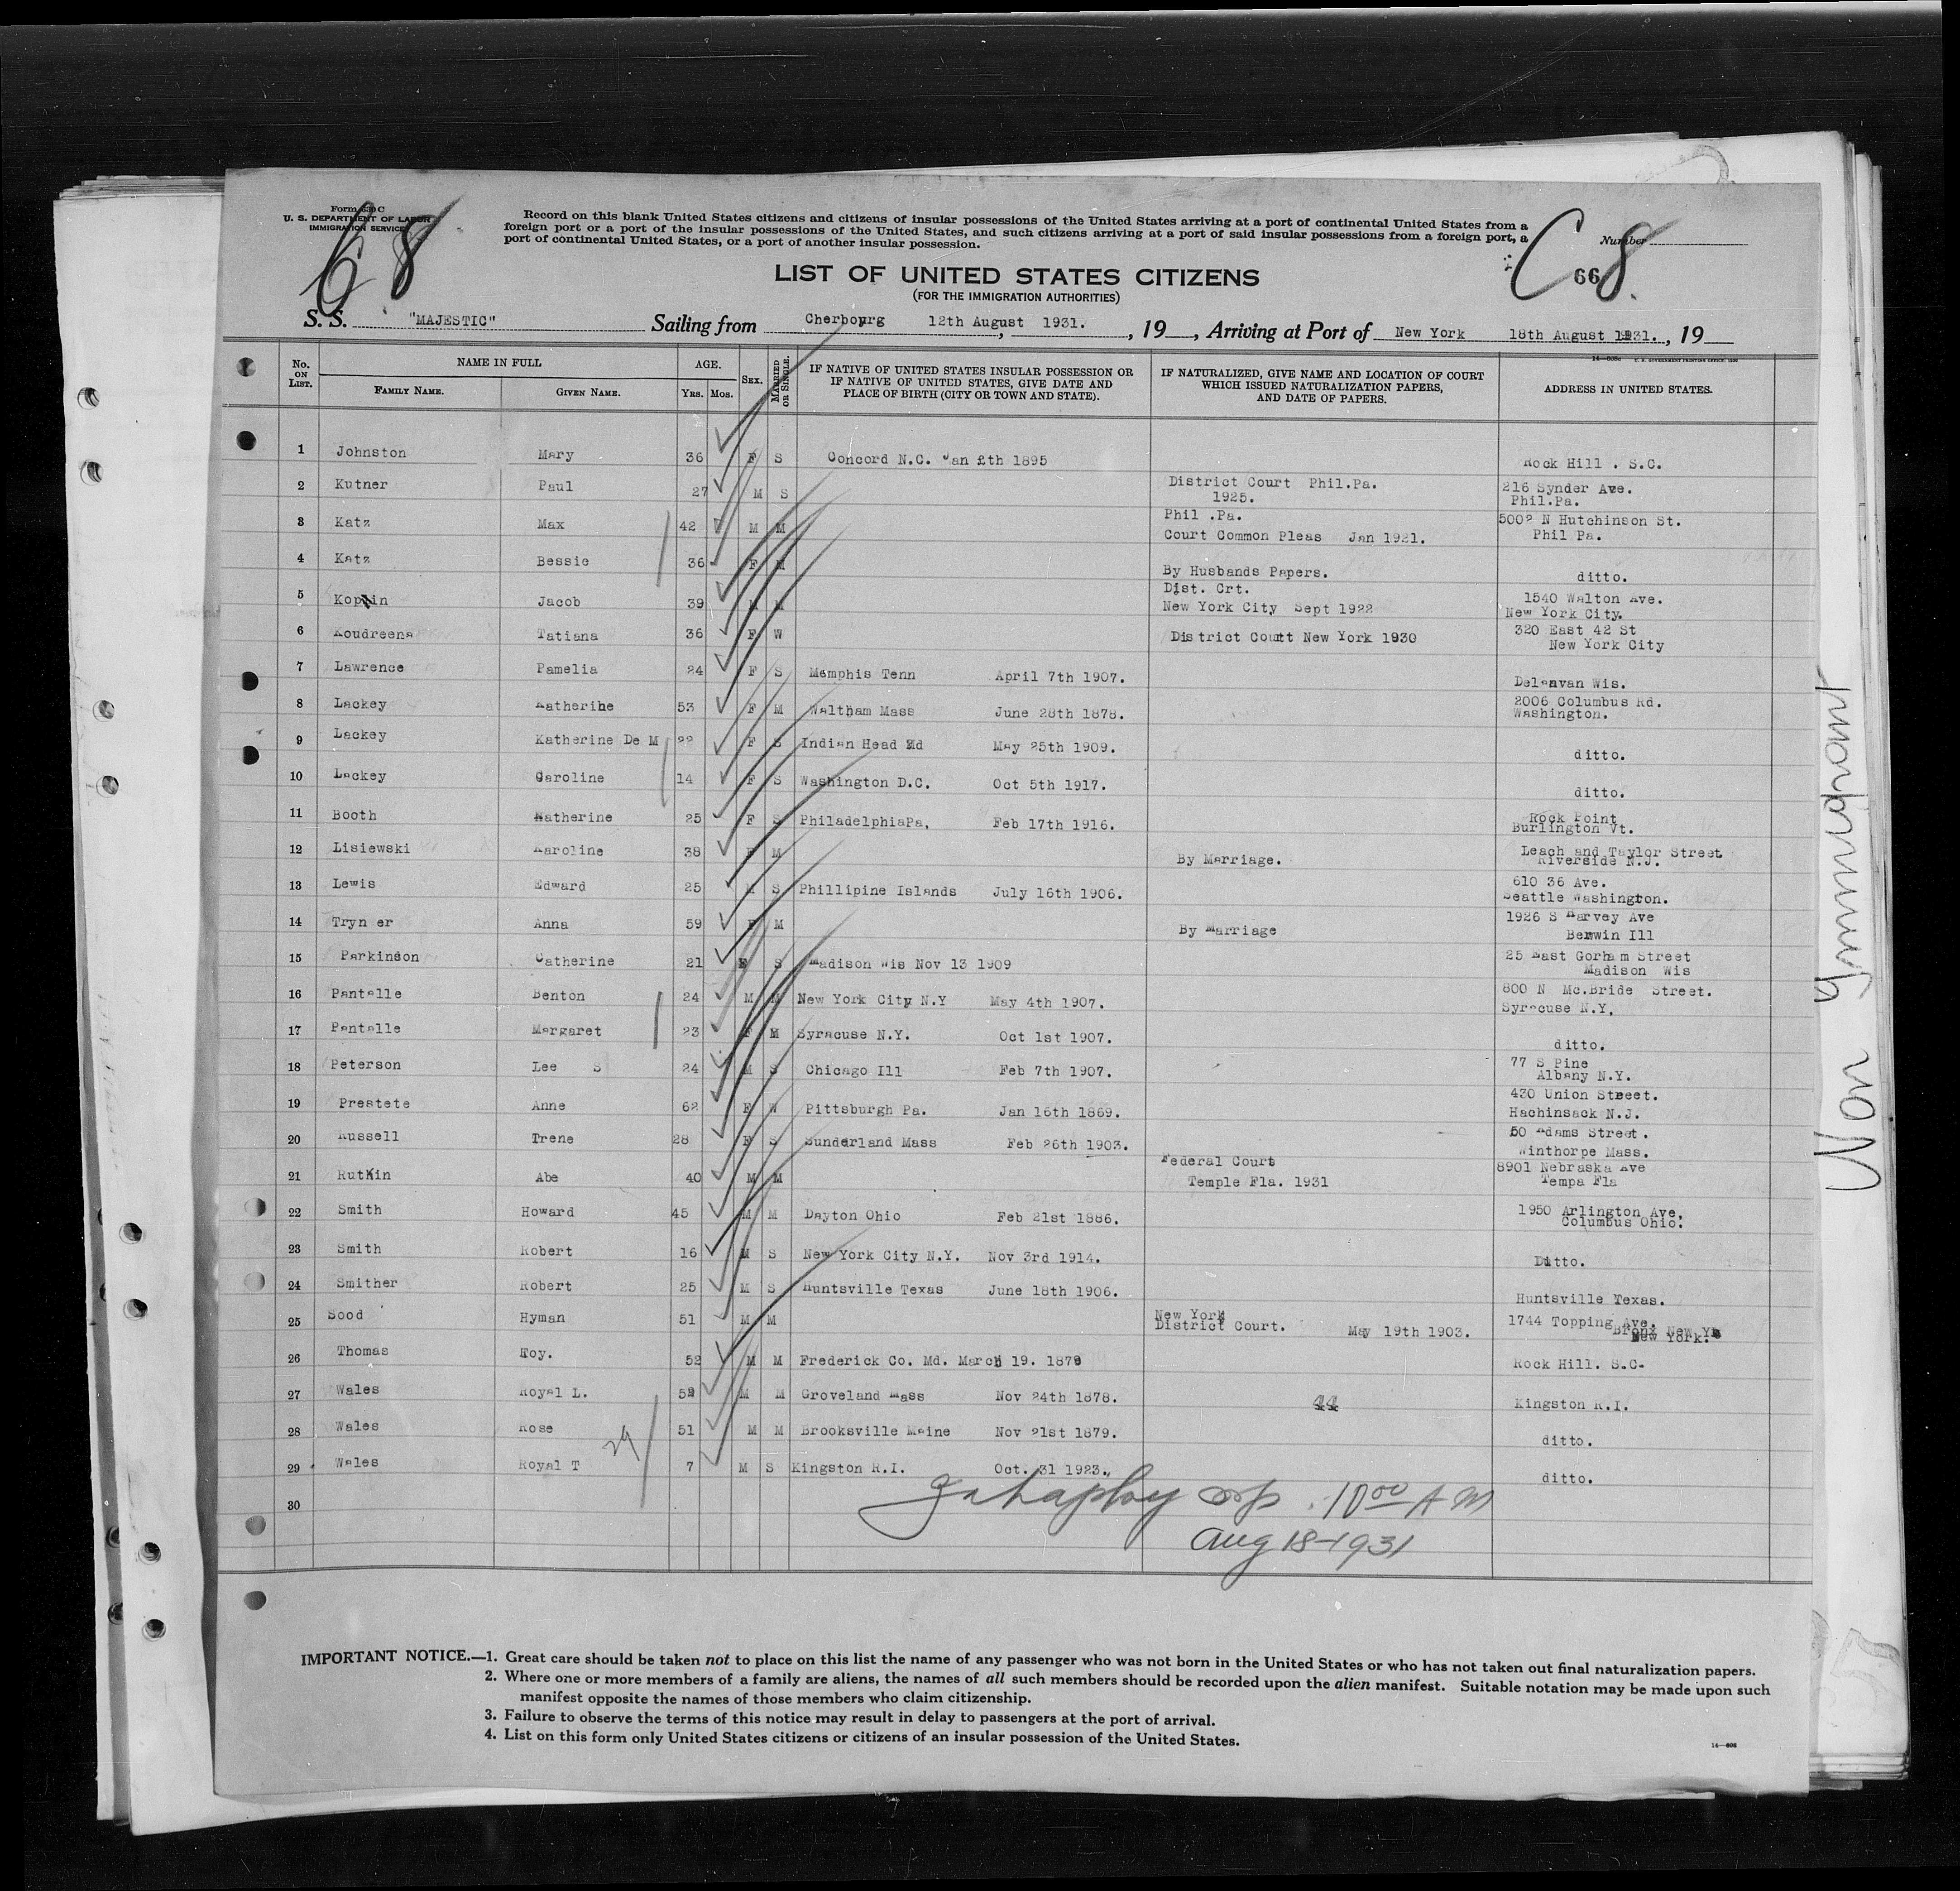 Form 630 C
U. S. DEPARTMENT OF LABOR
IMMIGRATION SERVICE
Record on this blank United States citizens and citizens of insular possessions of the United States arriving at a port of continental United States from a
foreign port or a port of the insular possessions of the United States, and such citizens arriving at a port of said insular possessions from a foreign port, a
port of continental United States, or a port of another insular possession.
Number
C 8
66
LIST OF UNITED STATES CITIZENS
(FOR THE IMMIGRATION AUTHORITIES)
S. S. "MAJESTIC" Sailing from Cherbourg 12th August 1931. , 19 , Arriving at Port of New York 18th August 1931. , 19
No. ON LIST. NAME IN FULL FAMILY NAME. GIVEN NAME. AGE. YRS. MOS. SEX. MARRIED OR SINGLE. IF NATIVE OF UNITED STATES INSULAR POSSESSION OR IF NATIVE OF UNITED STATES, GIVE DATE AND PLACE OF BIRTH (CITY OR TOWN AND STATE). IF NATURALIZED, GIVE NAME AND LOCATION OF COURT WHICH ISSUED NATURALIZATION PAPERS, AND DATE OF PAPERS. ADDRESS IN UNITED STATES.
1 Johnston Mary 36 F S Concord N.C. Jan 1895 Rock Hill . S.C.
2 Kutner Paul 27 M S District Court Phil.Pa. 1925. 216 Synder Ave. Phil.Pa.
3 Katz Max 42 M M Phil .Pa. Court Common Pleas Jan 1921. 5002 N Hutchinson St. Phil Pa.
4 Katz Bessie 36 F M By Husbands Papers. ditto.
5 Koplin Jacob 39 M M Dist. Crt. New York City Sept 1922 1540 Walton Ave. New York City.
6 Koudreena Tatiana 36 F W District Coutt New York 1930 320 East 42 St New York City
7 Lawrence Pamelia 24 F S Memphis Tenn April 7th 1907. Delanvan Wis.
8 Lackey Katherine 53 F M Waltham Mass June 28th 1878. 2006 Columbus Rd. Washington.
9 Lackey Katherine De M 22 F S Indian Head Md May 25th 1909. ditto.
10 Lackey Caroline 14 F S Washington D.C. Oct 5th 1917. ditto.
11 Booth Katherine 25 F S PhiladelphiaPa. Feb 17th 1916. Rock Point Burlington Vt.
12 Lisiewski Karoline 38 F M By Marriage. Leach and Taylor Street Riverside N.J.
13 Lewis Edward 25 M S Phillipine Islands July 16th 1906. 610 36 Ave. Seattle Washington.
14 Tryn er Anna 59 F M By Marriage 1926 S Harvey Ave Berwin Ill
15 Parkinson Catherine 21 F S Madison Wis Nov 13 1909 25 East Gorham Street Madison Wis
16 Pantalle Benton 24 M M New York City N.Y May 4th 1907. 800 N Mc.Bride Street. Syracuse N.Y.
17 Pantalle Margaret 23 F M Syracuse N.Y. Oct 1st 1907. ditto.
18 Peterson Lee S 24 M S Chicago Ill Feb 7th 1907. 77 S Pine Albany N.Y.
19 Prestete Anne 62 F W Pittsburgh Pa. Jan 16th 1869. 430 Union Street. Hachinsack N.J.
20 Russell Irene 28 F S Sunderland Mass Feb 26th 1903. 50 Adams Street. Winthorpe Mass.
21 Rutkin Abe 40 M M Federal Court Temple Fla. 1931 8901 Nebraska Ave Tempa Fla
22 Smith Howard 45 M M Dayton Ohio Feb 21st 1886. 1950 Arlington Ave. Columbus Ohio.
23 Smith Robert 16 M S New York City N.Y. Nov 3rd 1914. Ditto.
24 Smither Robert 25 M S Huntsville Texas June 18th 1906. Huntsville Texas.
25 Sood Hyman 51 M M New York District Court. May 19th 1903. 1744 Topping Ave. Bronx New York.
26 Thomas Roy. 52 M M Frederick Co. Md. March 19. 1879 Rock Hill. S.C.
27 Wales Royal L. 52 M M Groveland Mass Nov 24th 1878. 44 Kingston R.I.
28 Wales Rose 51 M M Brooksville Maine Nov 21st 1879. ditto.
29 Wales Royal T 7 M S Kingston R.I. Oct. 31 1923. ditto.
29
30
10 00 A M
Aug 18-1931
Non Immigrant
IMPORTANT NOTICE.—1. Great care should be taken not to place on this list the name of any passenger who was not born in the United States or who has not taken out final naturalization papers.
2. Where one or more members of a family are aliens, the names of all such members should be recorded upon the alien manifest. Suitable notation may be made upon such
manifest opposite the names of those members who claim citizenship.
3. Failure to observe the terms of this notice may result in delay to passengers at the port of arrival.
4. List on this form only United States citizens or citizens of an insular possession of the United States.